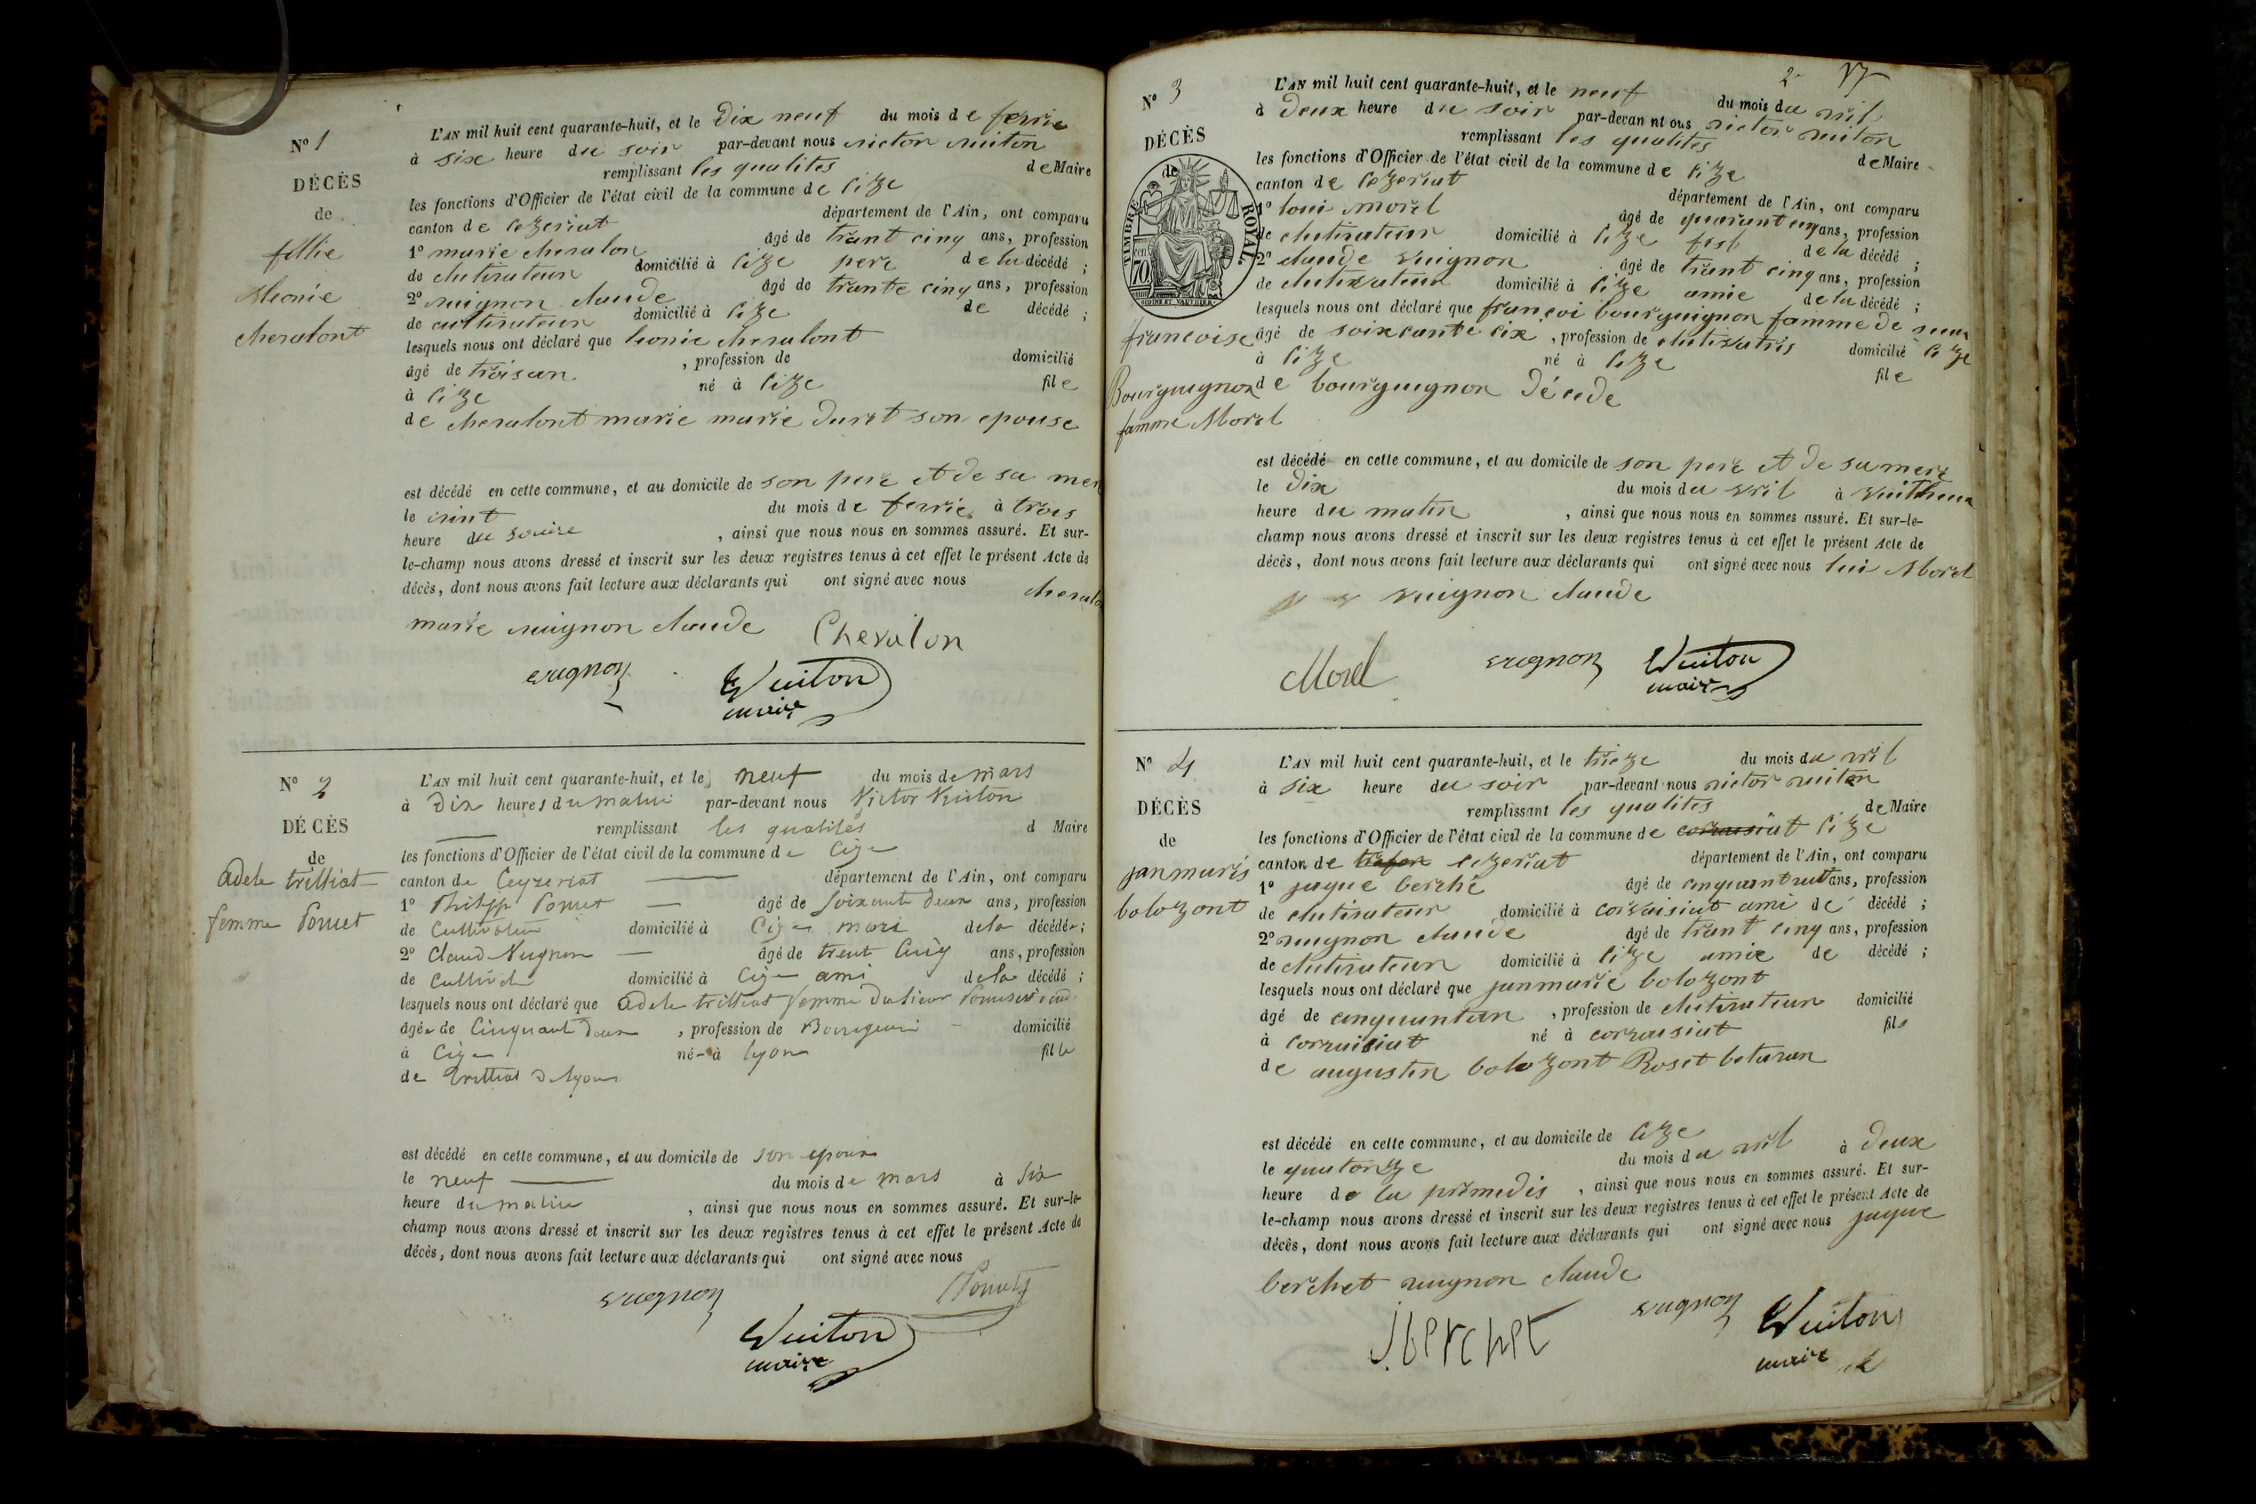 No 1
DÉCÈS
de
fillie
Leonie
cheralont
L'AN mil huit cent quarante-huit, et le Dix neuf du mois de ferrie
à six heure du soir par-devant nous victor vuiton
remplissant les qualites de Maire
les fonctions d'Officier de l'état civil de la commune de Cize
canton de Cezeriat département de l'Ain, ont comparu
1o marie cheralon âgé de trant cinq ans, profession
de cultivateur domicilié à Cize pere de la décédé ;
2o vuignon claude âgé de trante cinq ans, profession
de cultivateur domicilié à Cize de décédé ;
lesquels nous ont déclaré que leonie cheralont
âgé de trois an , profession de domicilié
à Cize né à Cize file
de cheralont marie marie Duret son epouse
est décédé en cette commune, et au domicile de son pere et de sa mer
le vint du mois de ferrie à trois
heure du soire , ainsi que nous nous en sommes assuré. Et sur-
le-champ nous avons dressé et inscrit sur les deux registres tenus à cet effet le présent Acte de
décès, dont nous avons fait lecture aux déclarants qui ont signé avec nous cheralo
marie vuignon claude Chevalon
vuignon Vuiton
maire
No 2
DÉCÈS
de
Adele trilliat
femme Pomet
L'AN mil huit cent quarante-huit, et le neuf du mois de mars
à Dix heures du matin par-devant nous Victor Vuiton
remplissant les qualités d Maire
les fonctions d'Officier de l'état civil de la commune de Cize
canton de Ceyzeriat département de l'Ain, ont comparu
1o Philipp Pomet âgé de soixante deux ans, profession
de Cultivateur domicilié à Cize mari de la décédée ;
2o Claud Vugnon âgé de trent cinq ans, profession
de Cultivat domicilié à Cize ami de la décédé ;
lesquels nous ont déclaré que adele trilliat femme du sieur
âgée de Cinquant deux , profession de domicilié
à Cize né à lyon fille
de trilliat de lyon
est décédé en cette commune, et au domicile de son epoux
le neuf du mois de mars à Six
heure du matin , ainsi que nous nous en sommes assuré. Et sur-le-
champ nous avons dressé et inscrit sur les deux registres tenus à cet effet le présent Acte de
décès, dont nous avons fait lecture aux déclarants qui ont signé avec nous
vuignon Pomet
Vuiton
maire
2
No 3
DÉCÈS
de
TIMBRE ROYAL
70
francoise
Bourguignon
famme Morel
L'AN mil huit cent quarante-huit, et le neuf du mois da vril
à Deux heure du soir par-devan nt ous victor vuiton
remplissant les qualites de Maire
les fonctions d'Officier de l'état civil de la commune de Cize
canton de Cezeriat département de l'Ain, ont comparu
1o loui morel âgé de ans, profession
de cultivateur domicilié à Cize fist de la décédé ;
2o claude vuignon âgé de trant cinq ans, profession
de cultivateur domicilié à Cize amie de la décédé ;
lesquels nous ont déclaré que françoi bourguignon famme de
âgé de soixante six , profession de domicilié Cize
à Cize né à Cize file
de bourguignon Décede
est décédé en cette commune, et au domicile de son pere et de sa mere
le Dix du mois da vril à vuitheur
heure du matin , ainsi que nous nous en sommes assuré. Et sur-le-
champ nous avons dressé et inscrit sur les deux registres tenus à cet effet le présent Acte de
décès, dont nous avons fait lecture aux déclarants qui ont signé avec nous lui Morel
vuignon claude
Morel vuignon Vuiton
maire
No 4
DÉCÈS
de
janmaris
bolozont
L'AN mil huit cent quarante-huit, et le trieze du mois da vril
à six heure du soir par-devant nous victor vuiton
remplissant les qualites de Maire
les fonctions d'Officier de l'état civil de la commune de Cize
canton de cezeriat département de l'Ain, ont comparu
1o jaque berche âgé de ans, profession
de cultivateur domicilié à corvaisiat ami de décédé ;
2o vuignon claude âgé de trant cinq ans, profession
de cultivateur domicilié à Cize amie de décédé ;
lesquels nous ont déclaré que janmarie bolozont
âgé de cinquantun , profession de cultivateur domicilié
à corvaisiat né à corvaisiat fils
de augustin bolozont Roset
est décédé en cette commune, et au domicile de Cize
le quatorze du mois da vril à Deux
heure de la primedis , ainsi que nous nous en sommes assuré. Et sur-
le-champ nous avons dressé et inscrit sur les deux registres tenus à cet effet le présent Acte de
décès, dont nous avons fait lecture aux déclarants qui ont signé avec nous jaque
berchet vuignon claude
J berchet vuignon Vuiton
maire